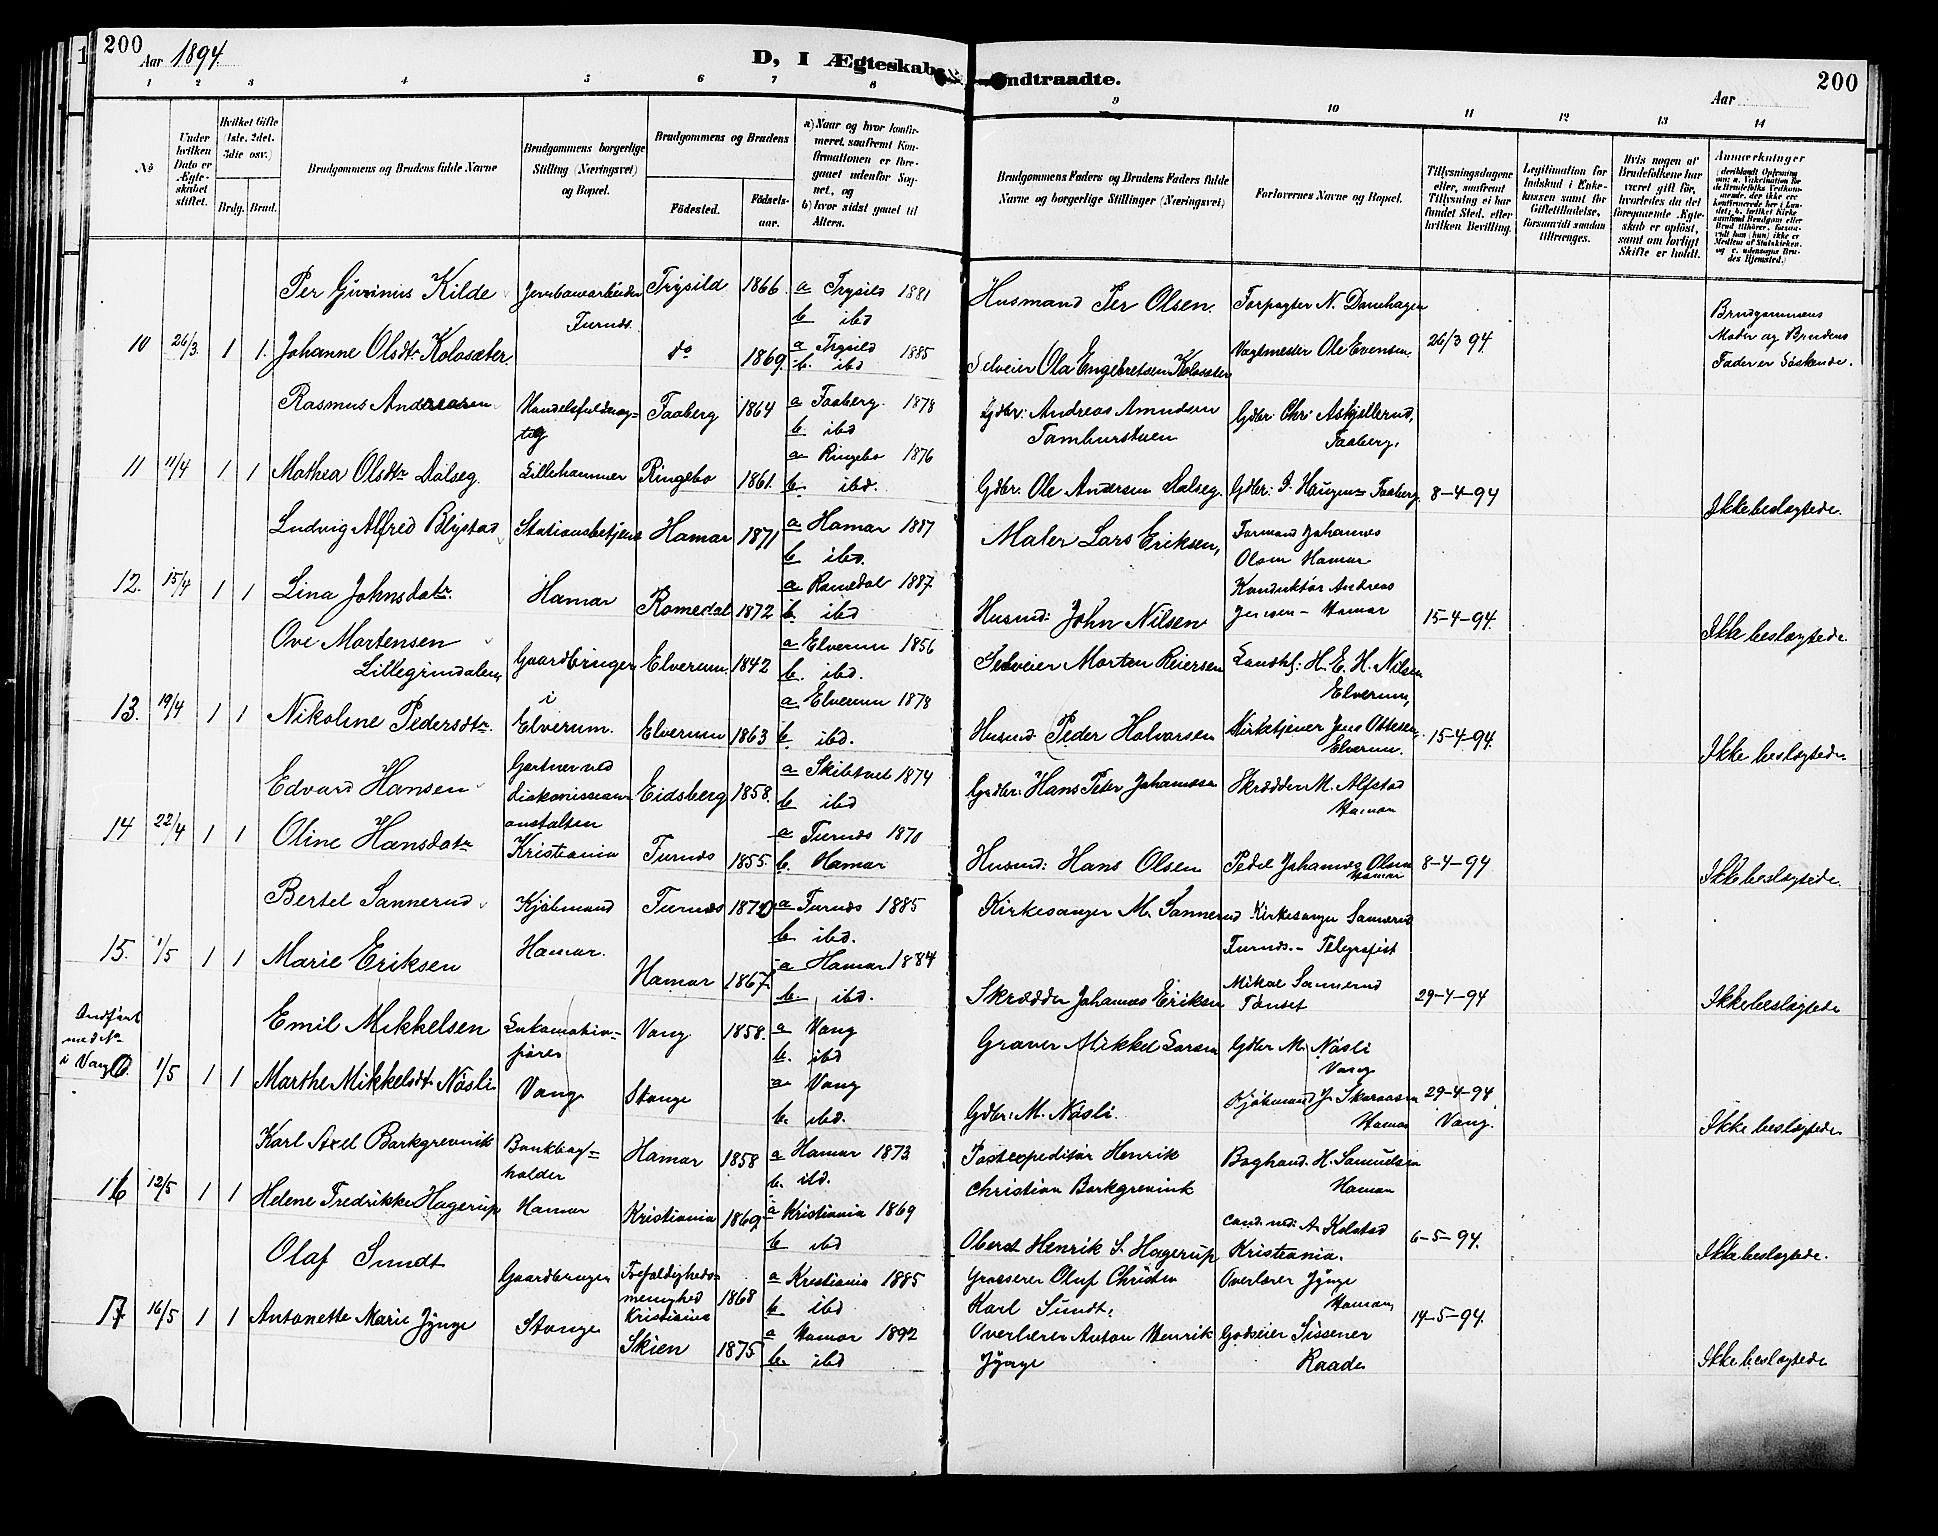 200
Aar 1894.
D, I Ægteskab Indtraadte.
Aar
200
1 2 3 4 5 6 7 8 9 10 11 12 13 14
No
Under hvilken Dato er Ægteskabet stiftet.
Hvilket Gifte (1ste, 2det, 3die osv.)
Brdg. Brud.
Brudgommens og Brudens fulde Navne
Brudgommens borgerlige Stilling (Næringsvei) og Bopæl.
Brudgommens og Brudens
Fødested. Fødselsaar.
a) Naar og hvor konfirmeret, saafremt Konfirmationen er foregaaet udenfor Sognet, og
b) hvor sidst gaaet til Alters.
Brudgommens Faders og Brudens Faders fulde Navne og borgerlige Stillinger (Næringsvei)
Forlovernes Navne og Bopæl.
Tillysningsdagene eller, saafremt Tillysning ei har fundet Sted, efter hvilken Bevilling.
Legitimation for Indskud i Enkekassen samt for Giftetilladelse, forsaavidt saadan tiltrænges.
Hvis nogen af Brudefolkene har været gift før, hvorledes da det foregaaende Ægteskab er opløst, samt om lovligt Skifte er holdt.
Anmærkninger
Per Kilde Jernbanearbeider Trysild 1866. a Trysild 1881 Husmand Per Olsen. Forpagter N. Domhagen Brudgommens
Furnes. b ibd Moder og Brudens
10 26/3 1 1. Johanne Olsdtr Kolosæter. do 1869. a Trysild 1885 Selveier Ola Engebretsen Kolosæter Vagtmester Ole Evensen. 26/3 94. Fader er Søskende.
b. ibd
Rasmus Andreasen Handelsfuldmægtig Faaberg 1864 a Faaberg. 1878 Gdbr: Andreas Amundsen Gdbr: Chr: Askjellerud,
b. ibd Tamburstuen Faaberg.
11 11/4 1 1 Mathea Olsdtr Dalseg. Lillehammer Ringebo 1861. a Ringebo 1876 Gdbr. Ole Andersen Dalseg. Gdbr: P. Haugen Faaberg 8-4-94 Ikke beslægtede.
b. ibd.
Ludvig Alfred Blystad Stationsbetjent Hamar 1871 a Hamar 1887 Maler Lars Eriksen, Formand Johannes
b ibd. Olsen Hamar
12. 15/4 1 1 Lina Johnsdatr. Hamar Romedal 1872 a Romedal 1887. Husmd: John Nilsen Konduktør Andreas
b. ibd Jensen - Hamar 15-4-94. Ikke beslægtede.
Ove Mortensen Gaardbruger Elverum. 1842 a Elverum 1856 Selveier Morten Reiersen Landhl: H. E. H. Nilsen
Lillegrindalen, i b. ibd. Elverum,
13. 19/4 1 1 Nikoline Pedersdtr. Elverum. Elverum 1863 a Elverum 1878 Husmd Peder Halvorsen Kirketjener Jens Ottesen 15-4-94. Ikke beslægtede.
b. ibd. Elverum.
Edvard Hansen Gartner ved Eidsberg 1858. a Skibtvet 1874 Gadbr: Hans Peter Johannesen Skrædder M. Alfstad
diakonisseanstalten b ibd Hamar
14 22/4 1 1 Oline Hansdatr Kristiania Furnes 1855. a Furnes 1870 Husmd: Hans Olsen Pedel Johannes Olsen 8-4-94 Ikke beslægtede.
b. Hamar Hamar
Bertel Sannerud Kjøbmand Furnes 1870 a Furnes 1885 Kirkesanger M. Sannerud Kirkesanger Sannerud
b. ibd. Furnes. - Telegrafist
15. 1/5 1 1 Marie Eriksen Hamar. Hamar 1867. a Hamar 1884 Skrædder Johannes Eriksen Mikal Sannerud 29-4-94 Ikke beslægtede
b. ibd. Tønset
Andført med No i Vang Emil Mikkelsen Lokomotivfører Vang 1858. a Vang Graver Mikkel Larsen Gdbr M. Nøsli
b. ibd Vang
1/5 1 1 Marthe Mikkelsdtr Nøsli Vang Stange a Vang Gdbr: M. Nøsli. Kjøbmand J. Skaraasen 29-4-94
b. ibd. Hamar Vang. Ikke beslægtede
Karl Axel Borkgrevink Bankbogholder Hamar 1858 a Hamar 1873 Postexpeditør Henrik Boghand. H. Samuelsen
b. ibd. Christian Borkgrevink Hamar
16 12/5 1 1 Helene Fredrikke Hagerup Hamar Kristiania 1869. a Kristiania 1869 Oberst Henrik S. Hagerup Cand. md: A. Kolstad 6-5-94. Ikke beslægtede.
b. ibd Kristiania.
Olaf Sundt Gaardbruger Trefoldigheds- 1868 a Kristiania 1885 Grosserer Oluf Christen Overlærer Jynge
menighed Kristiania b. ibd Karl Sundt. Hamar
17 16/5 1 1 Antonette Marie Jynge Stange Skien 1875 a Hamar 1892 Overlærer Anton Henrik Godseier Sissener 14-5-94.
b. ibd Jynge Raade Ikke beslægtede